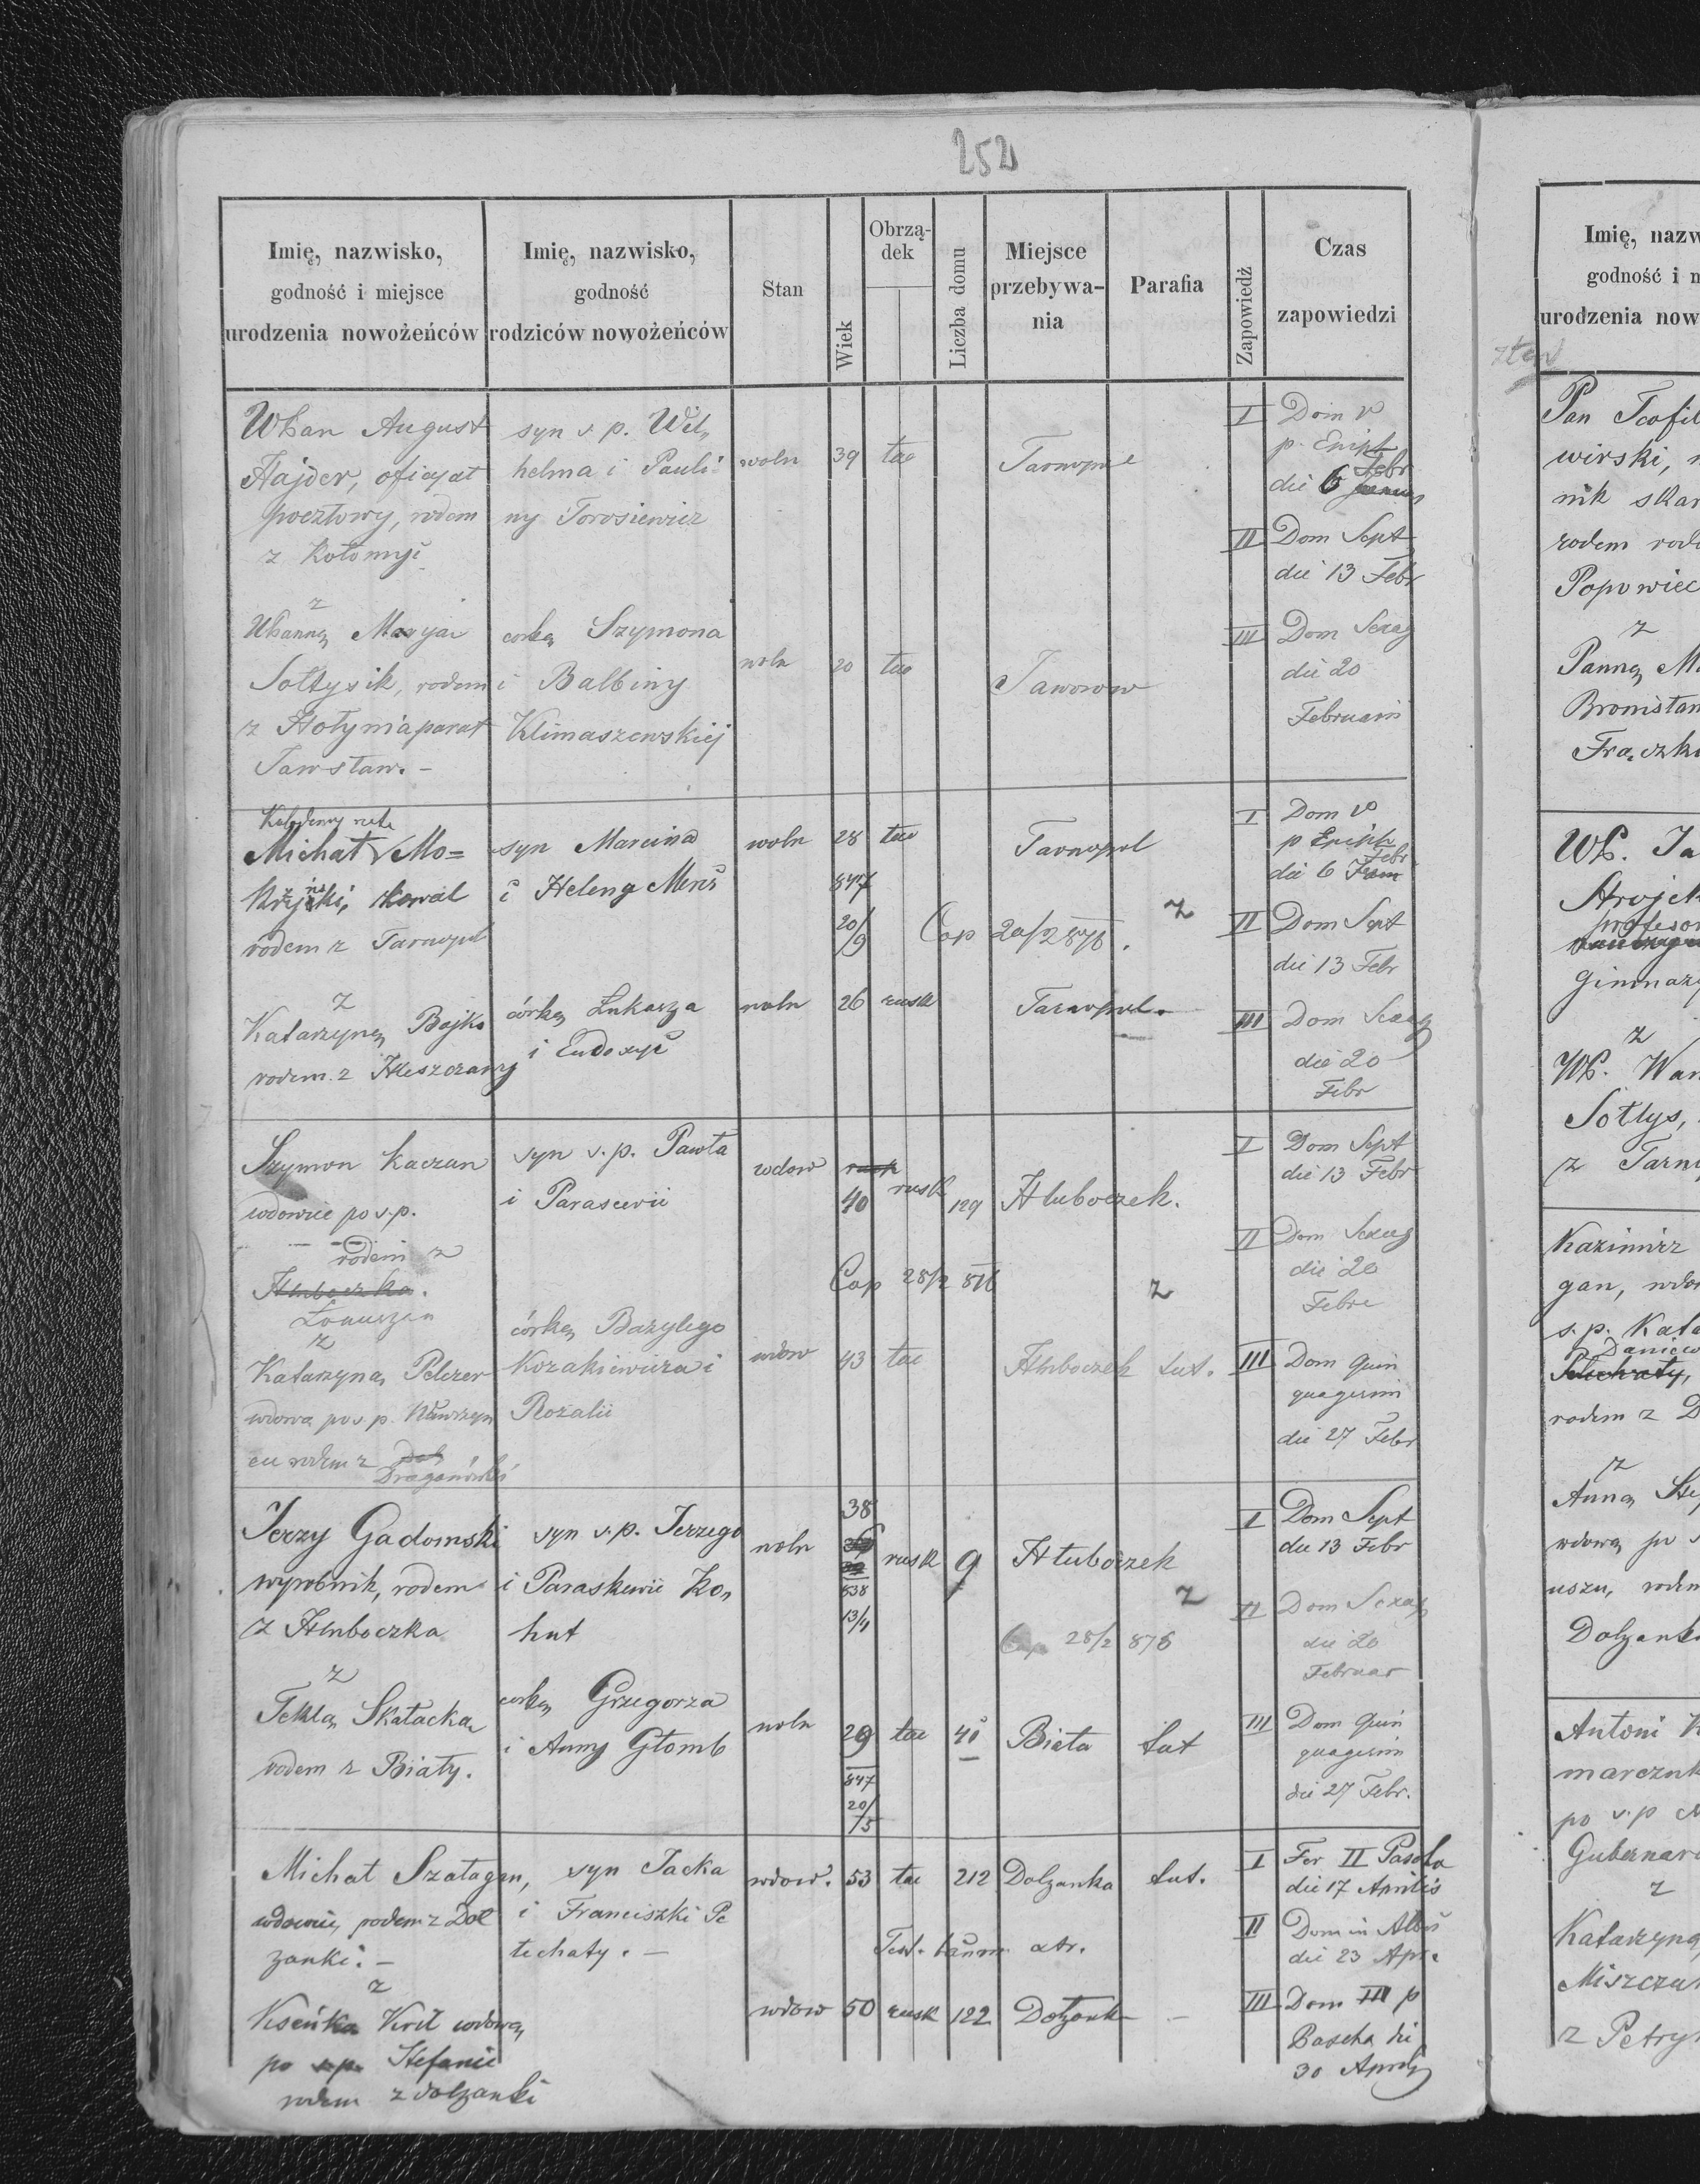 252
Imię, nazwisko,
godność i miejsce
urodzenia nowożeńców
Imię, nazwisko,
godność
rodziców nowożeńców
Stan
Wiek
Obrzą-
dek
Liczba domu
Miejsce
przebywa-
nia
Parafia
Zapowiedź
Czas
zapowiedzi
August
Hajder, oficyał
pocztowy, rodem
z Kołomyi
syn s. p. Wil„
helma i Pauli=
ny Torosiewicz
woln
39
łac
Tarnopol
I Dom V
p. Epiph
die 6 Febr
II Dom Sept
die 13 Febr
z
Maryą
Sołtysik, rodem
z Hołynia parat
corką Szymona
i Balbiny
Klimaszewskiej
woln
20
łac
Jaworow
III Dom Sexag
die 20
Februarii
Michał Mo=
kowal
rodem z Tarnopol
syn Marcina
i Heleny
woln
28
847
20/9
łac
Tarnopol
Cop 20/2 876.
z
I Dom V
p Epiph
die 6 Febr
II Dom Sept
die 13 Febr
z
Katarzyną Bojko
rodem z
córką Łukasza
i Eudoxyi
woln
26
rusk
Tarnopol.
III Dom Sexag
die 20
Febr
Szymon Kaczan
wdowiec po s.p.
rodem z
Hłuboczka.
syn s. p. Pawła
i Parascevii
wdow
40
rusk
129
Hłuboczek.
Cop 28/2 876
z
I Dom Sept
die 13 Febr
II Dom Sexag
die 20
Febr
z
Katarzyną Pelczer
wdową po s. p. Wawrzyn
cu rodem z
Draganówki
córką Bazylego
Kozakiewicza i
Rozalii
wdow
43
łac
Hłuboczek
tut.
III Dom Quin
quagesim
die 27 Febr
Jerzy Gadomski
wyrobnik, rodem
z Hłuboczka
syn s. p. Jerzego
i Paraskewii Ko„
hut
woln
38
838
13/4
rusk
9
Hłuboczek
z
Cop 28/2 876
I Dom Sept
die 13 Febr
II Dom Sexag
die 20
Februar
z
Teklą Skałacka
rodem z Biały.
corką Grzegorza
i Anny Głomb
woln
29
847
20/5
łac
40
Biała
tut
III Dom Quin
quagesim
die 27 Febr.
Michał Szatagan,
wdowiec, rodem z Doł
żanki. –
syn Jacka
i Franciszki Pe
techaty. –
wdow.
53
łac
212
Dołżanka
tut.
I Fer II Pascha
die 17 Aprilis
II Dom in Albis
die 23 Apr.
z
Kseńka Król wdową
po s.p. Stefanie
rodem z dołżanki
wdow
50
rusk
122
III Dom III p
Pascha die
30 Aprilis
Imię, nazw
godność i m
urodzenia now
Pan Teofil
wirski, n
nik skar
rodem
Popowiec
z
Panną Ma
Bronisław
WP. Ja
Strojek
profesor
gimnazy
z
WP. Wan
Sołtys,
z Tarn
Kazimirz
gan, wdow
s. p. Kata
rodem z D
z
Anną
wdową po s
uszu, rodem
Dołżanki
Antoni K
marczuk
po s. p
z
Katarzyną
Miszczuk
z Petry